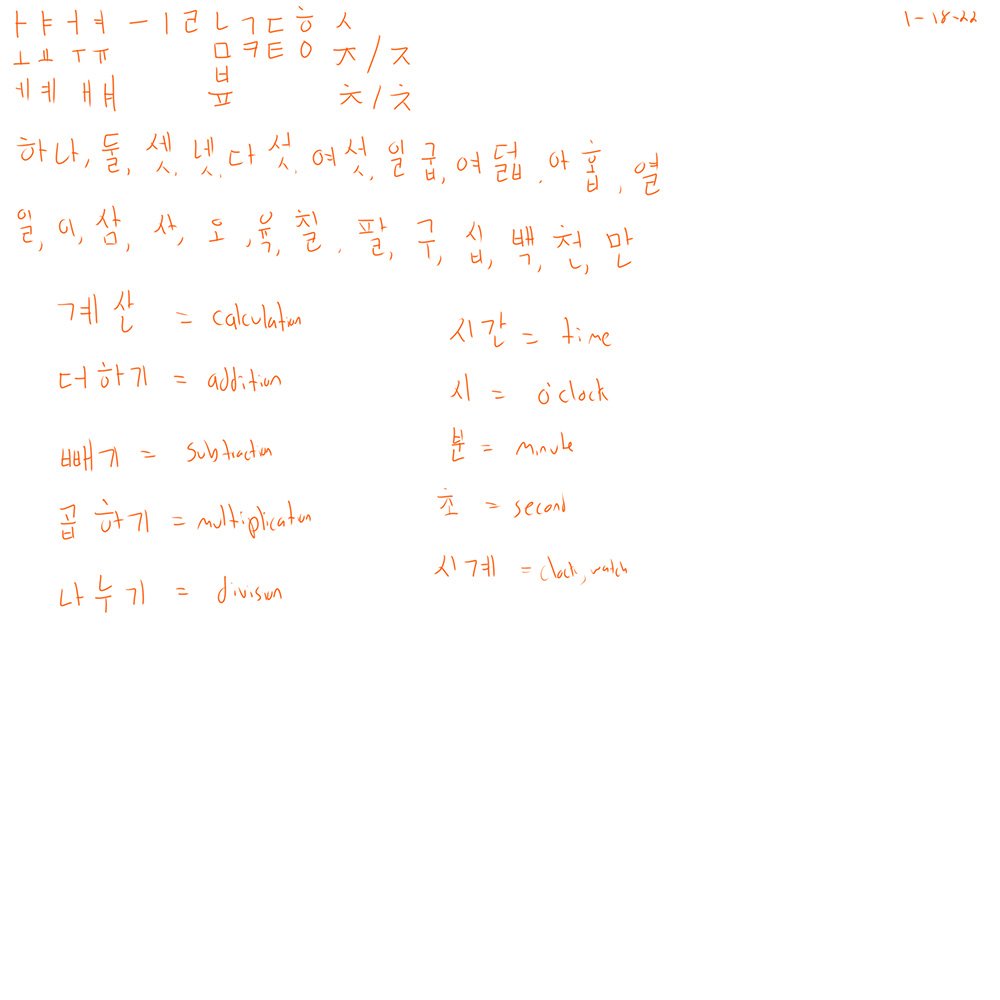 ㅏㅑㅓㅕ ㅡㅣㄹㄴㄱㄷㅎㅅ 1-18-22
ㅗㅛㅜㅠ ㅁㅋㅌㅇㅈ/ㅈ
ㅂ
ㅔㅖㅐㅒ ㅍ ㅊ/ㅊ
하나, 둘, 셋, 넷, 다섯, 여섯, 일굽, 여덟, 아홉, 열
일, 이, 삼, 사, 오, 육, 칠, 팔, 구, 십, 백, 천, 만
계산 = calculation
더하기 = addition
빼기 = subtraction
곱하기 = multiplication
나누기 = division
시간 = time
시 = o'clock
분 = minute
초 = second
시계 = clock, watch